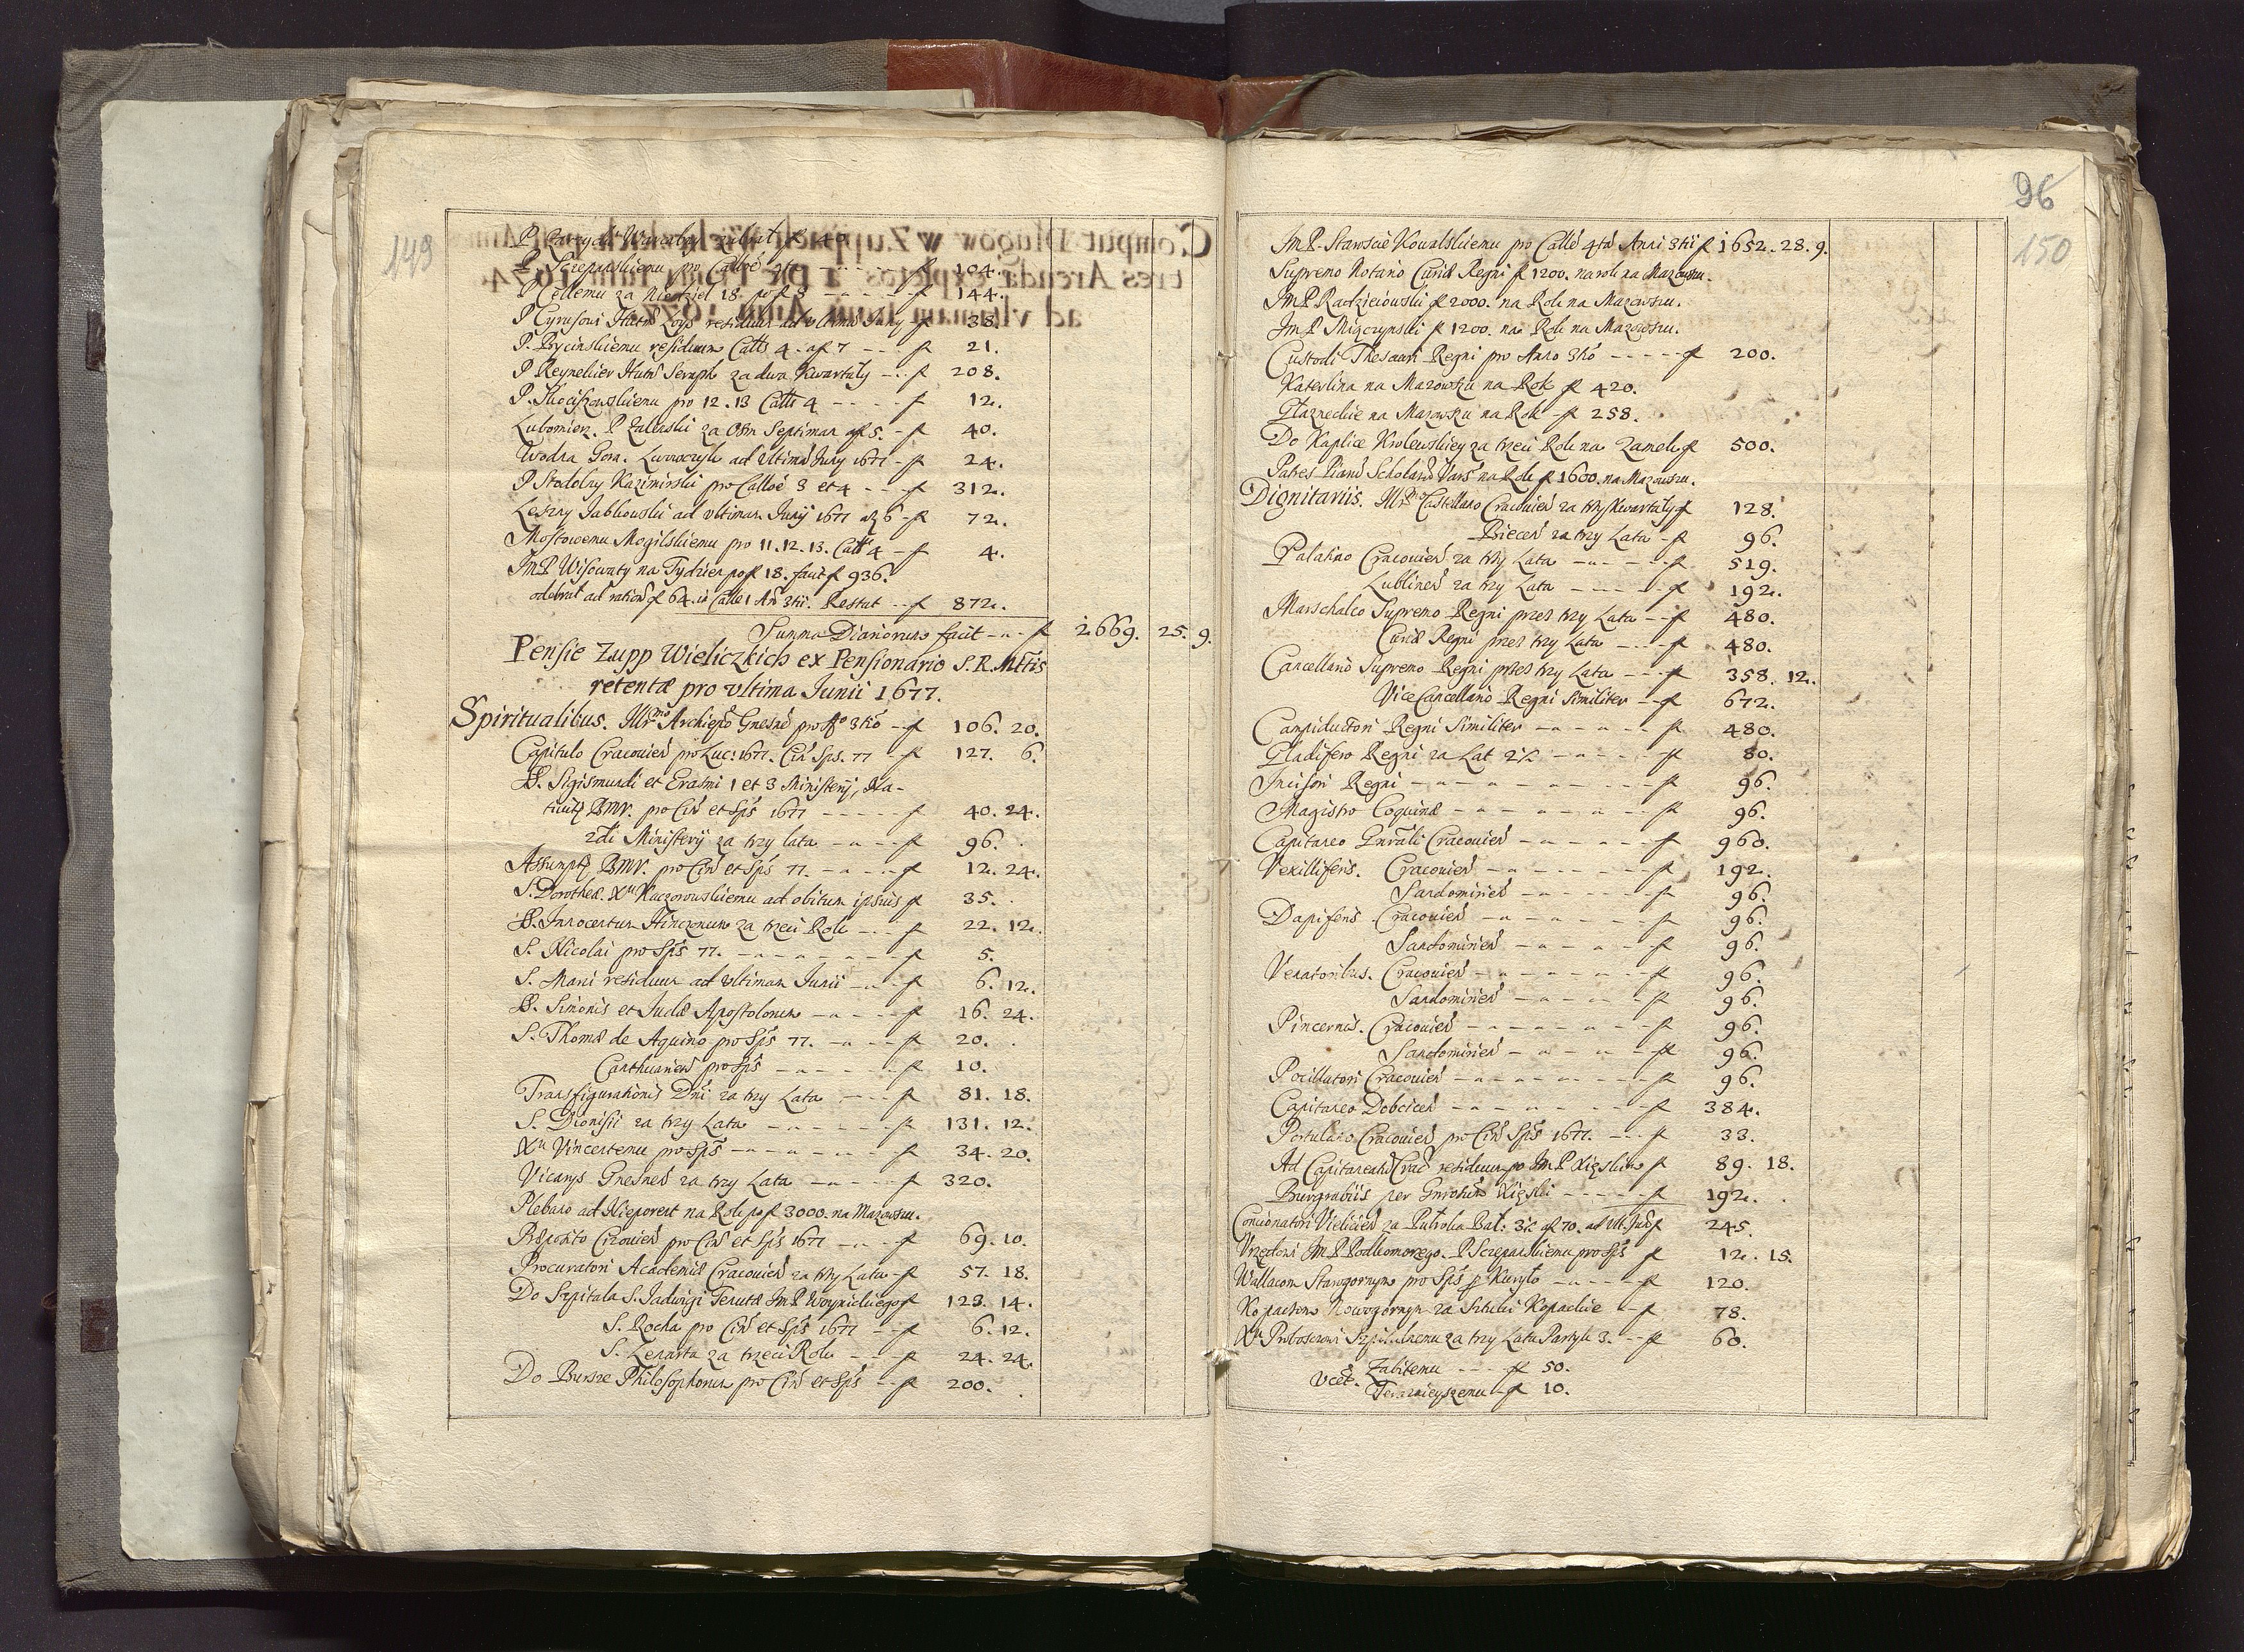 149
P. Szczepanskiemu pro Calłoe 4ta f 104.
P Cellemu za Niedziel 18. po f 8 f 144.
P Cyrusowi residuum ad ultimã Juny f 38.
P. Rycinskiemu residuum Callõ 4. a f 7 f 21.
P Reynekier Hutñ Seraph za dwa Kwartały f 208.
P. Skociszowskiemu pro 12. 13 Callõ 4 f 12.
Lubomierz. P Zalinski za 08m Septiman a f 5. f 40.
Wodna Gora. Lwraczyk ad ultimã Juny 1677 f 24.
P Stodolny Kazimirski pro Calloe 3 et 4 f 312.
Leszny Jablkowski ad ultimam Junij 1677 6 f 72.
Mostowemu Mogilskiemu pro 11. 12. 13. Callõ 4 f 4.
Im P Wisowaty na Tydzien po f 18. facit f 936.
odebrał ad rationẽ f 64. in Calle 1 Añ 3tii. Restat f 872.
Summa Diariorum facit f 2669. 25. 9.
Pensie Zupp Wieliczkich ex Pensionario S. R. Mttis
retentæ pro ultima Junii 1677.
Spiritualibus. Illrmo Archiepõ Gnesnẽ pro Ao 3tio f 106. 20.
Capitulo Cracovieñ pro Luc: 1677. Ciñ Sps. 77 f 127. 6.
SS. Sigismundi et Erasmi 1 et 3 Ministerij, Na-
tivitꝭ BMV. pro Ciñ et Sps 1677 f 40. 24.
2di Ministerij za trzy lata f 96.
Assumptꝭ BMV. pro Ciñ et Sps 77. f 12. 24.
S. Dorotheæ. Xu Kaczorowskiemu ad obitum ipsius f 35.
SS. Innocentum Hinczonum za trzeci Rok f 22. 12.
S. Nicolai pro Sps 77. f 5.
S. Marci residuum ad ultimam Junii f 6. 12.
SS. Simonis et Judæ Apostolorum f 16. 24.
S. Thomæ de Aquino pro Sps 77. f 20.
Carthusianẽ pro Sps f 10.
Transfigurationis Dñi za trzy Lata f 81. 18.
S. Dionisii za trzy Lata f 131. 12.
Xu Vincentemu pro Sps f 34. 20.
Vicarys Gnesneñ za trzy Lata f 320.
Plebano ad Nieporent na Rok po f 3000. na Mazowszu.
Præposito Cizovieñ pro Ciñ et Sps 1677 f 69. 10.
Procuratori Academiæ Cracovieñ za trzy Lata f 57. 18.
Do Szpitala S. Jadwigi Tenutæ Im P Woynickiego f 123. 14.
S. Rocha pro Ciñ et Sps 1677 f 6. 12.
S. Lenarta za trzeci Rok f 24. 24.
Do Bursze Philosophorum pro Ciñ et Sps f 200.
96
150
Im P. Staroscie Kowalskiemu pro Calle 4ta Anni 3tii f 1652. 28. 9.
Supremo Notario Curiæ Regni f 1200. na rok na Mazowszu.
Im P Radzieiowski f 2000. na Rok na Mazowszu.
Im P Miączynski f 1200. na Rok na Mazowszu.
Custodi Thesauri Regni pro Anno 3tio f 200.
Katerlina na Mazowszu na Rok f 420.
Głazneckie na Mazowszu na Rok f 258.
Do Kaplice Krolewskiey za trzeci Rok na Zamek f 500.
Patres Pianũ Scholarũ Vars na Rok f 1600. na Mazowszu.
Dignitariis. Illrmo Castellano Cracovieñ za trzy Kwartały f 128.
Bieceñ za trzy Lata f 96.
Palatino Cracovieñ za trzy Lata f 519.
Lublineñ za trzy Lata f 192.
Marschalco Supremo Regni przes trzy Lata f 480.
Curiæ Regni przes trzy Lata f 480.
Cancellario Supremo Regni przes trzy Lata f 358. 12.
Vice Cancellario Regni Similiter f 672.
Campiductori Regni Similiter f 480.
Gladifero Regni za Lat 2½ f 80.
Incisori Regni f 96.
Magistro Coquinæ f 96.
Capitaneo Gnrali Cracovieñ f 960.
Vexilliferis. Cracovieñ f 192.
Sandomirieñ f 96.
Dapiferis Cracovieñ f 96.
Sandomirieñ f 96.
Venatoribus. Cracovieñ f 96.
Sandomirieñ f 96.
Pincernis. Cracovieñ f 96.
Sandomirieñ f 96.
Pocillatori Cracovieñ f 96.
Capitaneo Dobciceñ f 384.
Portulano Cracovieñ pro Ciñ Sps 1677. f 33.
Ad Capitaneatũ Crac residuum po Im P Xięskim f 89. 18.
Burgrabiis per Gnrosũ Xięski f 192.
Concionatori Vieliceñ f 245.
Urzędowi Im P Podkomorzego. P Szczepanskiemu pro Sps f 12. 15.
Wallacom Starogornym pro Sps p Kuryło f 120.
Kopaczom Nowogornym za Sztuki Kopackie f 78.
Xu Proboszczowi Szpitalnemu za trzy Lata Partyk 3. f 60.
Zabitemu f 50.
Vcet. Teraznieyszemu f 10.